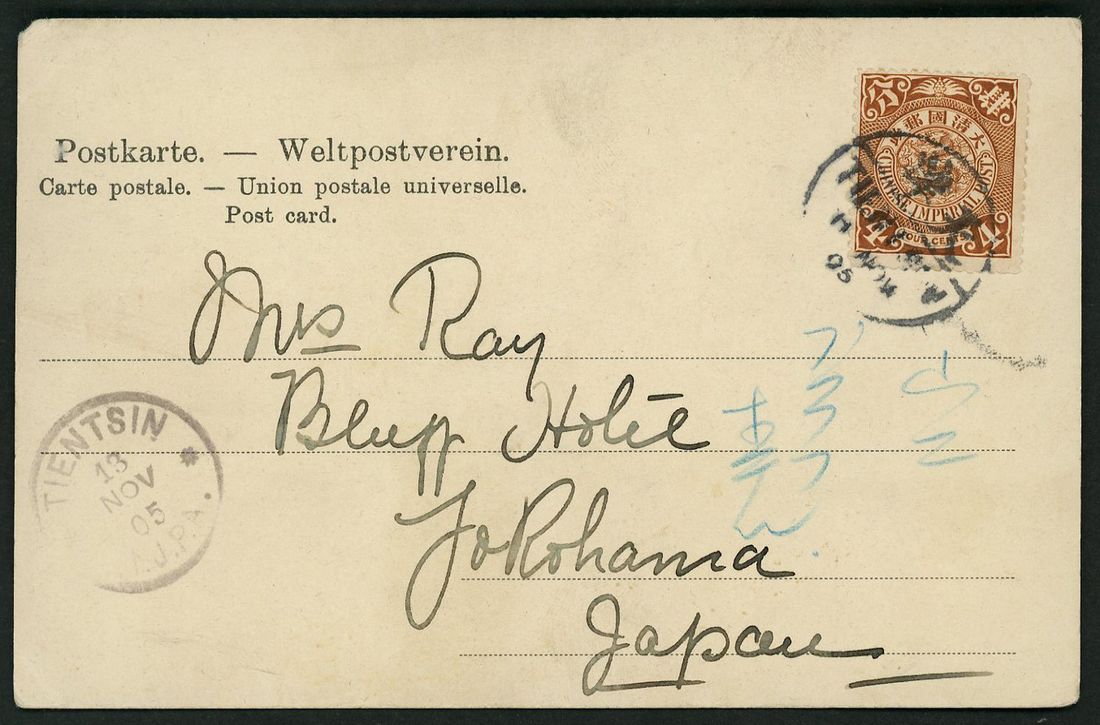 Postkarte. — Weltpostverein.
Carte postale. — Union postale universelle.
Post card.
分 肆
大清國郵政
CHINESE IMPERIAL POST
4 FOUR CENTS 4
NOV
05
Mrs Ray
Bluff Hotel
Yokohama
Japan
TIENTSIN
13
NOV
05
I.J.P.A.